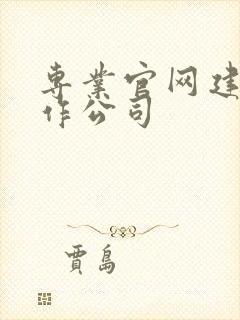 專業官网建
作公司
賈島